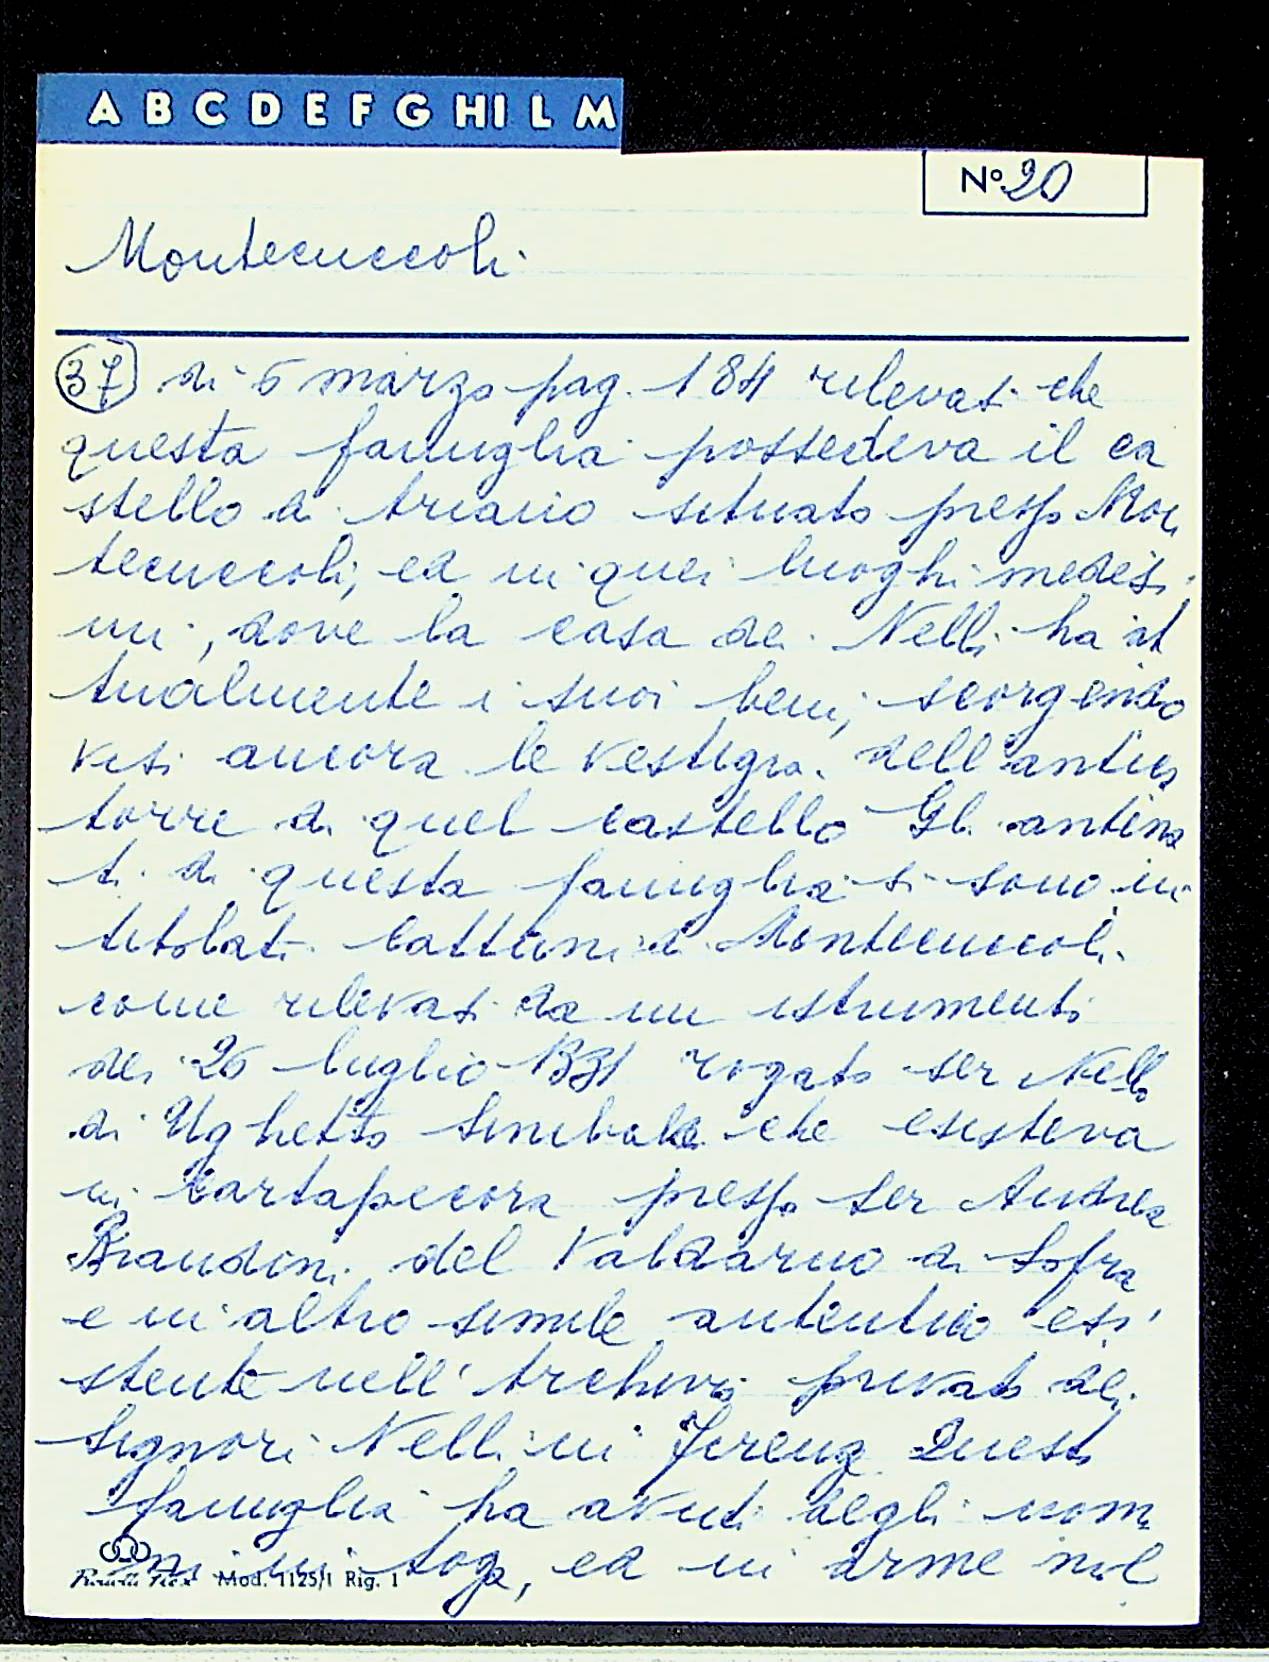 A B C D E F G H I L M
Nº 20
Montecuccoli
37 di 5 marzo pag. 184 rilevasi che
questa famiglia possedeva il ca
stello di Ariano situato presso Mon
tecuccoli, ed in quei luoghi medesi
mi, dove la casa dei Nelli ha at
tualmente i suoi beni, scorgendo
visi ancora le vestigia dell'antica
torre di quel castello Gli antena
ti di questa famiglia si sono in
titolati Cattani di Montecuccoli
come rilevasi da un istrumento
dei 26 luglio 1331 rogato ser Nello
di Ughetto Sinibaldi che esisteva
in cartapecora presso Ser Andrea
Brandini del Valdarno di Sopra
e in altro simile autentico esi
stente nell'Archivio privato dei
Signori Nelli in Firenze Questa
famiglia ha avuti degli uomi
ni in toga, ed in arme nel
Mod. 1125/1 Rig. 1